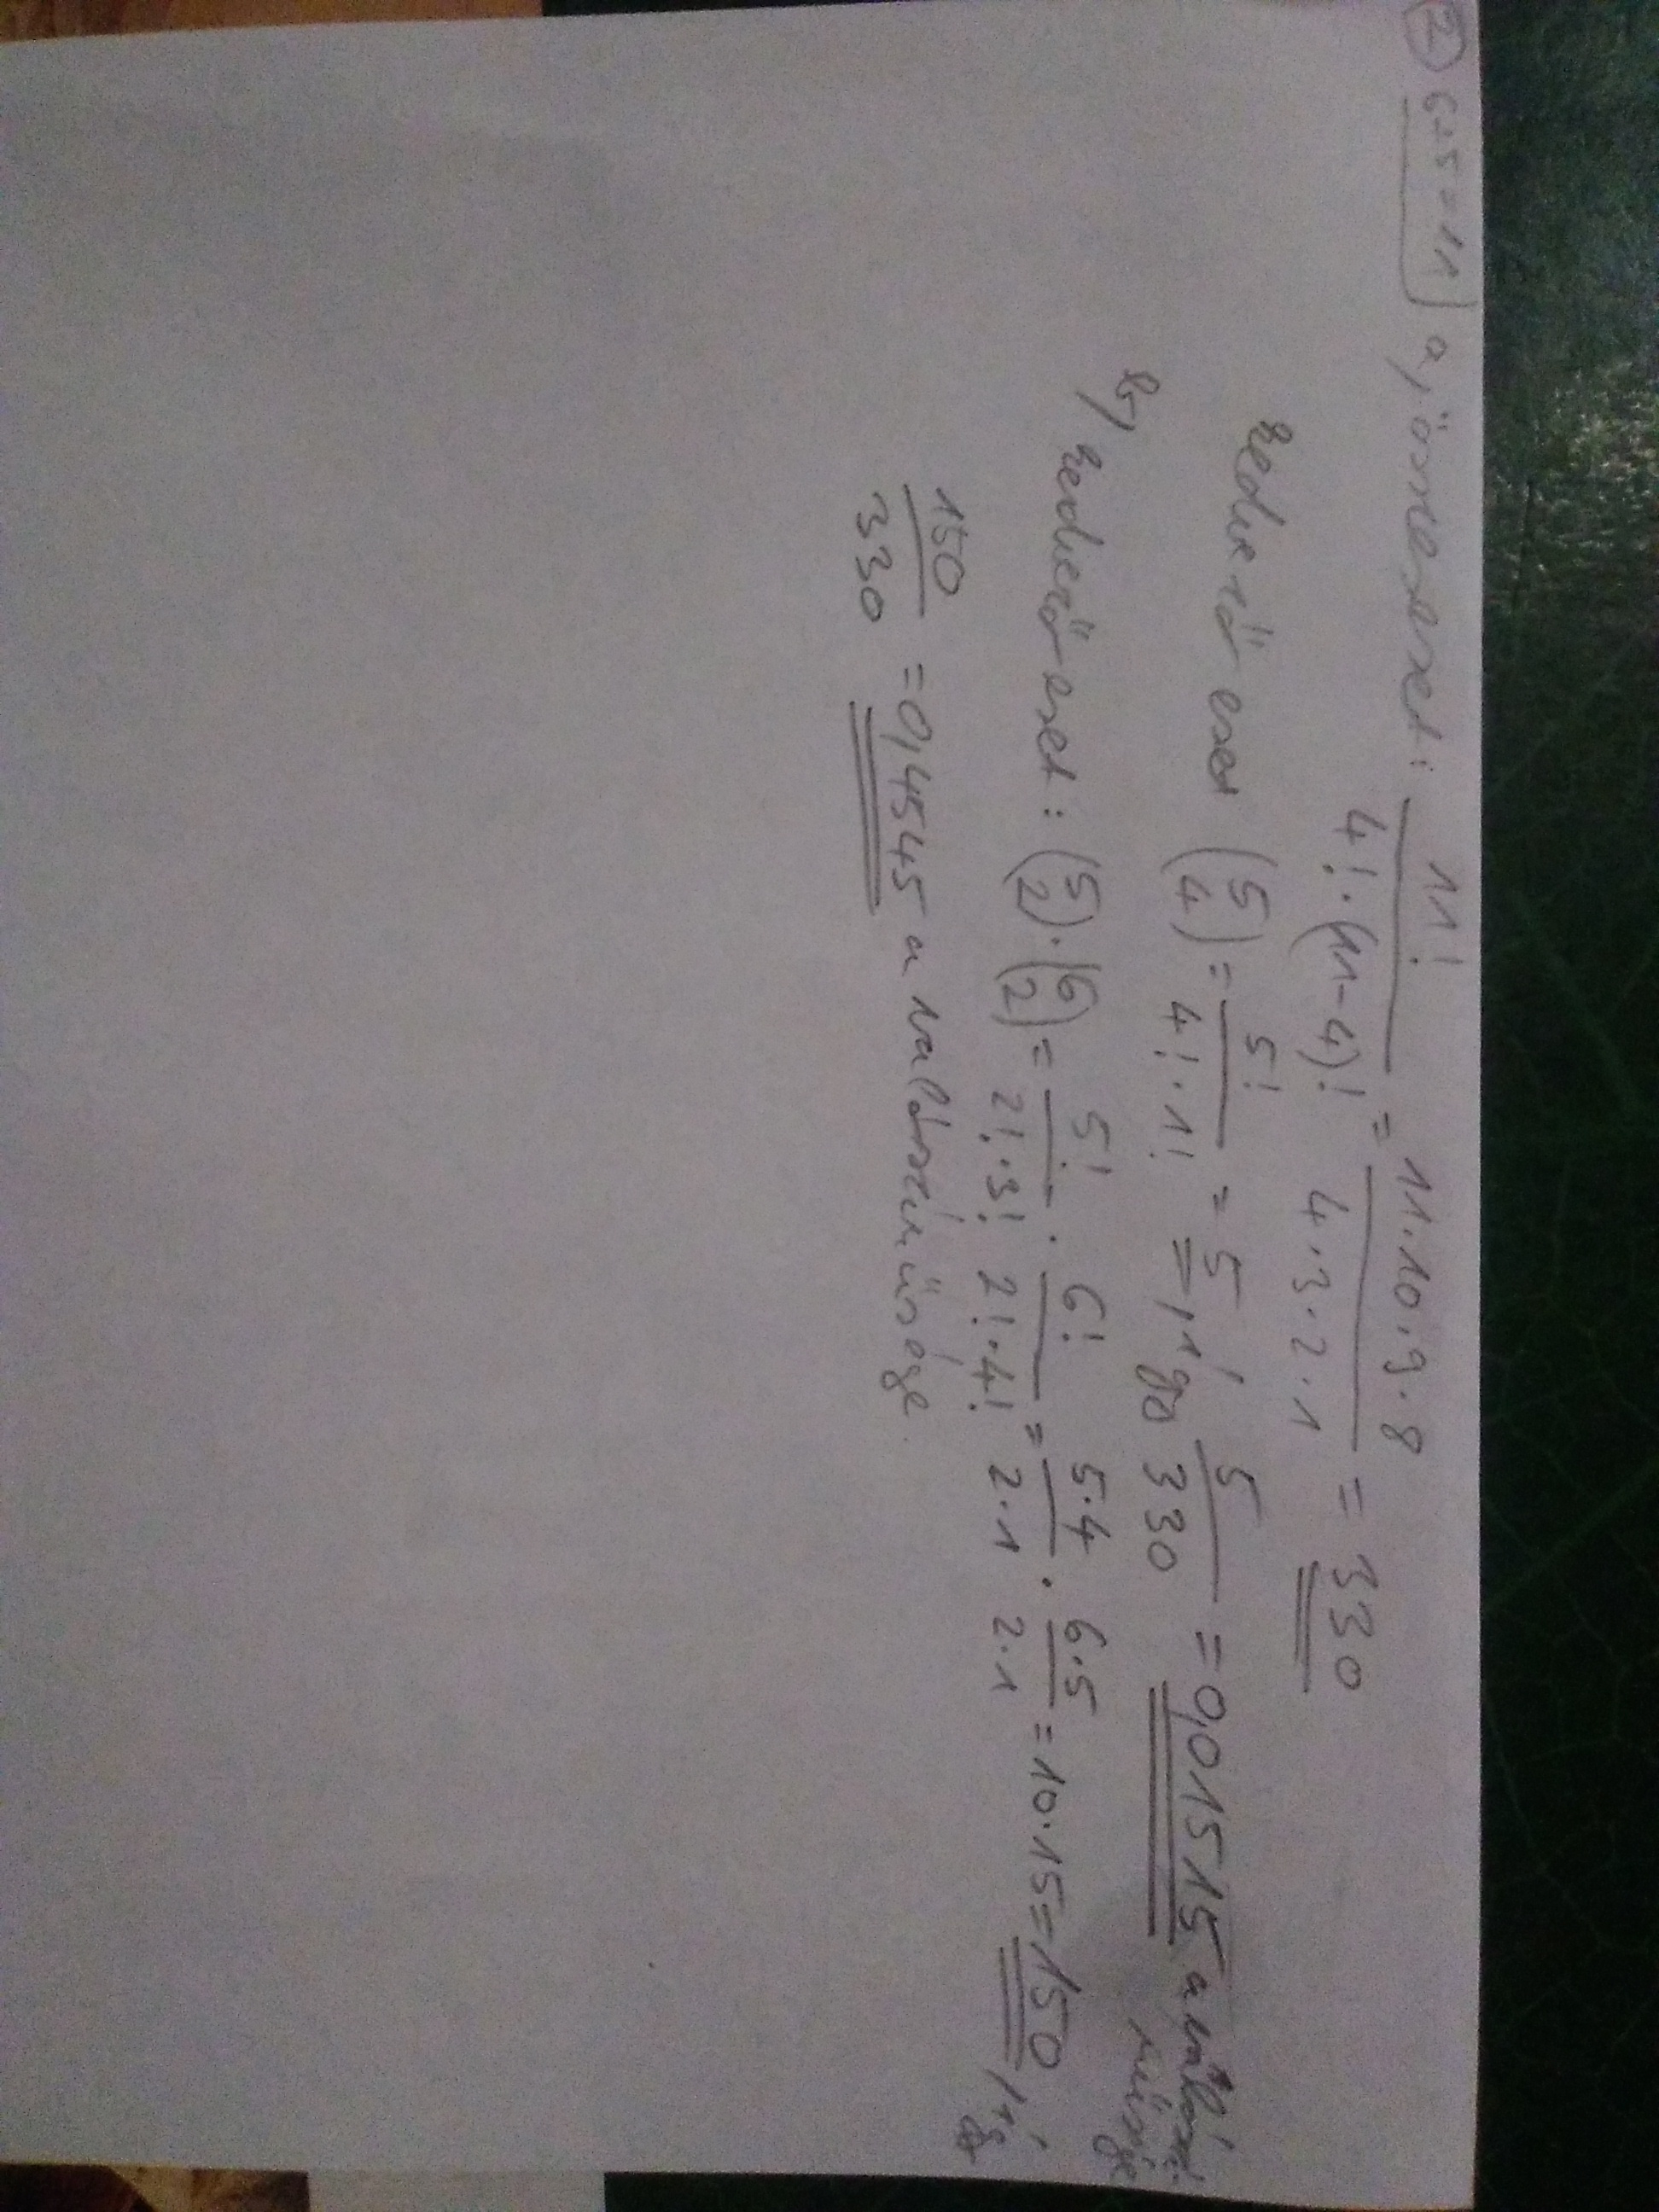 ② 6+5=11 a, összeset: 11! / 4!·(11-4)! = 11·10·9·8 / 4·3·2·1 = 330
kedvező eset (5 4) = 5! / 4!·1! = 5, így 5/330 = 0,01515 a valószí-
nűsége
b, kedvező eset: (5 2)·(6 2) = 5! / 2!·3! · 6! / 2!·4! = 5·4 / 2·1 · 6·5 / 2·1 = 10·15 = 150, így
150/330 = 0,4545 a valószínűsége.